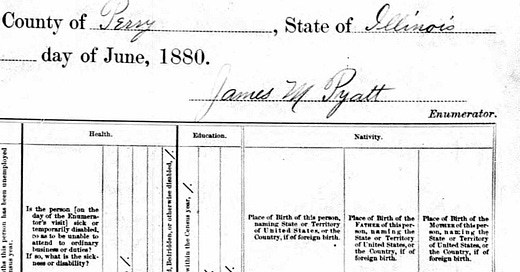 County of Perry, State of Illinois
day of June, 1880.
James M Pyatt
Enumerator.
Health. Education. Nativity.
the person has been unemployed
Census year.
Is the person [on the
day of the Enumera-
tor's visit] sick or
temporarily disabled,
so as to be unable to
attend to ordinary
business or duties?
If so, what is the sick-
ness or disability?
Bedridden, or otherwise disabled, /.
within the Census year, /.
Place of Birth of this person,
naming State or Territory
of United States, or the
Country, if of foreign birth.
Place of Birth of the
FATHER of this per-
son, naming the
State or Territory of
United States, or the
Country, if of
foreign birth.
Place of Birth of the
MOTHER of this per-
son, naming the
State or Territory of
United States, or the
Country, if of
foreign birth.